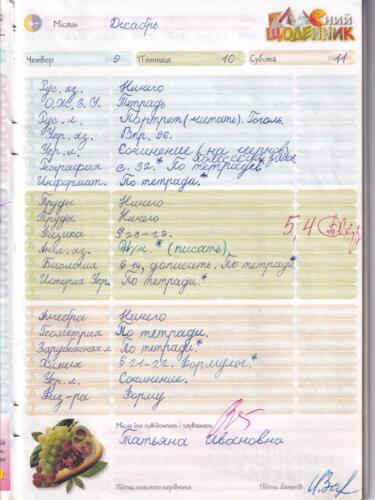 Місяць Декабрь
Класний
ЩОДЕННИК
Четвер 9 П'ятниця 10 Субота 11
Рус. яз. Ничего
О.Ж.З.Ч. Тетрадь
Рус. л. Портрет (читать). Гоголь.
Укр. яз. Впр. 96.
Укр. л. Сочинение (на черновик)
География с. 32.* По тетради*
Информат. По тетради.*
Труды Ничего
Труды Ничего
Физика § 28-29.
5, 4
Англ. яз. (писать)
Биология § 14, дописать. По тетради*
История Укр. По тетради.*
Алгебра Ничего
Геометрия По тетради.
Зарубежная л. По тетради.*
Химия § 21-22. Формулы.*
Укр. л. Сочинение.
Физ-ра Форму
Місце для повідомлень і зауважень
Татьяна Ивановна
Підпис класного керівника Підпис батьків